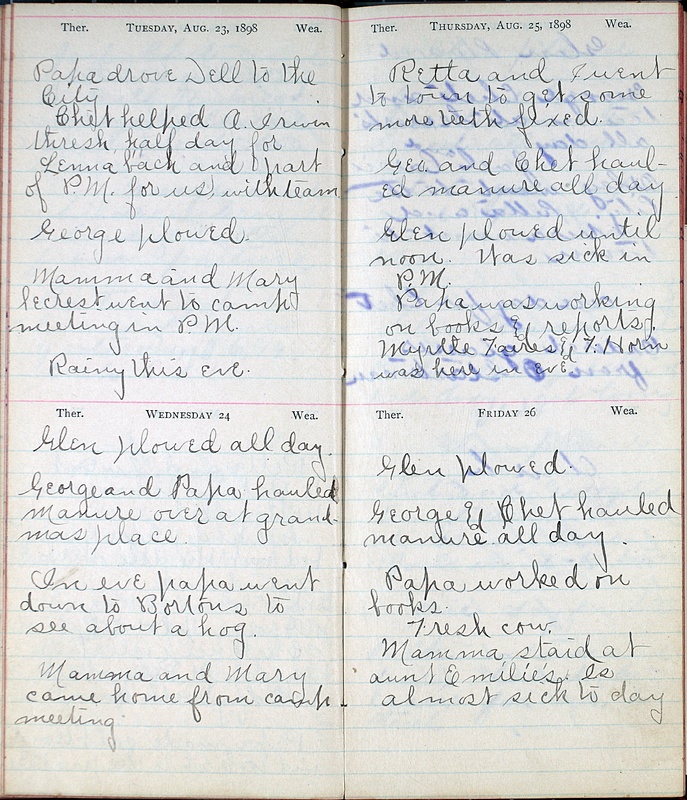 Ther. Tuesday, Aug. 23, 1898 Wea.
Papa drove Dell to the
City
Chet helped A. Irwin
thresh half day for
Lenna back and (part
of P.M. for us) with team
George plowed.
Mamma and Mary
Secrest went to camp
meeting in P.M.
Rainy this eve.
Ther. Wednesday 24 Wea.
Glen plowed all day.
George and Papa hauled
manure over at grand-
mas place.
In eve papa went
down to Bortons to
see about a hog.
Mamma and Mary
came home from camp
meeting
Ther. Thursday, Aug. 25, 1898 Wea.
Retta and I went
to town to get some
more teeth fixed.
Geo. and Chet haul-
ed manure all day
Glen plowed until
noon. Was sick in
P.M.
Papa was working
on books & reports.
Myrtle Faires & F. Horn
was here in eve.
Ther. Friday 26 Wea.
Glen plowed.
George & Chet hauled
manure all day.
Papa worked on
books.
Fresh cow.
Mamma staid at
aunt Emilie's. Is
almost sick to day